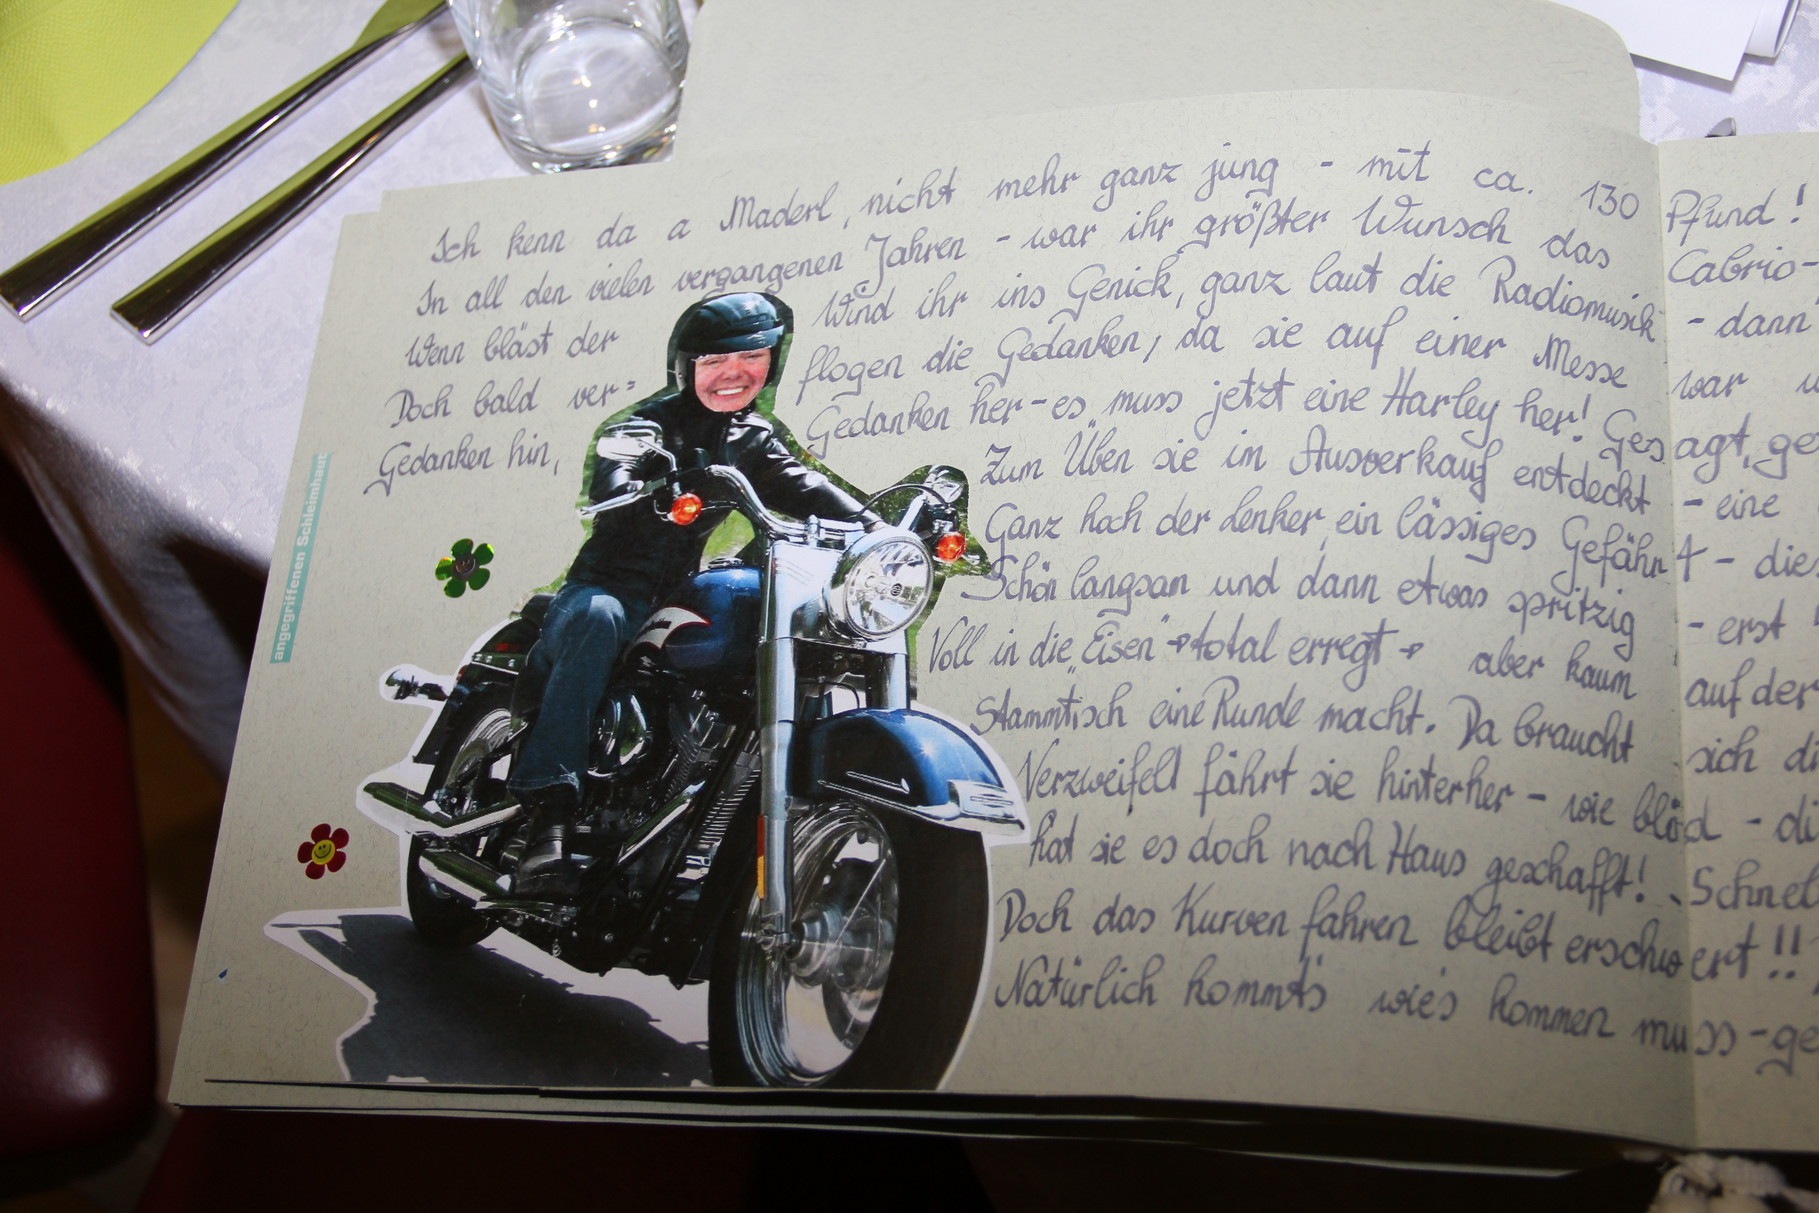 Ich kenn da a Maderl, nicht mehr ganz jung - mit ca. 130 Pfund!
In all den vielen vergangenen Jahren - war ihr größter Wunsch das Cabrio-
Wenn bläst der Wind ihr ins Genick, ganz laut die Radiomusik - dann
Doch bald ver= flogen die Gedanken, da sie auf einer Messe war
Gedanken hin, Gedanken her - es muss jetzt eine Harley her! Gesagt, ge
Zum Üben sie im Ausverkauf entdeckt - eine
Ganz hoch der Lenker, ein lässiges Gefährt - dies
Schön langsam und dann etwas spritzig - erst
Voll in die „Eisen" → total erregt → aber kaum auf der
Stammtisch eine Runde macht. Da braucht sich di
Verzweifelt fährt sie hinterher - wie blöd - du
hat sie es doch nach Haus geschafft! Schnel
Doch das Kurven fahren bleibt erschwert!!
Natürlich kommt's wie's kommen muss - ge
angegriffenen Schleimhaut